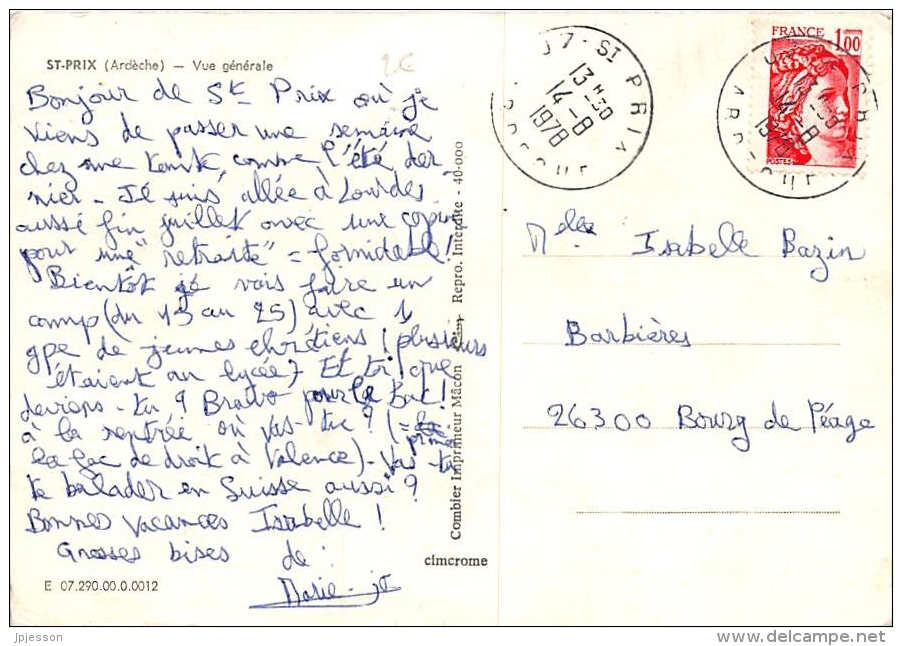 ST-PRIX (Ardèche) — Vue générale
2€
Bonjour de St Prix où je
viens de passer une semaine
chez une tante, comme l'été der
nier - Je suis allée à Lourdes
aussi fin juillet avec une copine
pour une "retraite" = formidable !
Bientôt je vais faire un
camp (du 13 au 25) avec 1
gpe de jeunes chrétiens (plusieurs
étaient au lycée) Et toi que
deviens-tu ? Bravo pour le Bac !
à la rentrée où vas-tu ? (=
la fac de droit à Valence) - Vas-tu
te balader en Suisse aussi ?
Bonnes vacances Isabelle !
Grosses bises de :
Marie-jo
E 07.290.00.0.0012
Combier Imprimeur Mâcon Cim Repro. Interdite - 40-000
cimcrome
07-ST PRIX
13 H 30
14-8
1978
ARDECHE
FRANCE 1,00
POSTES
14-8
1978
Mlle Isabelle Bazin
Barbières
26300 Bourg de Péage
jpjesson
www.delcampe.net